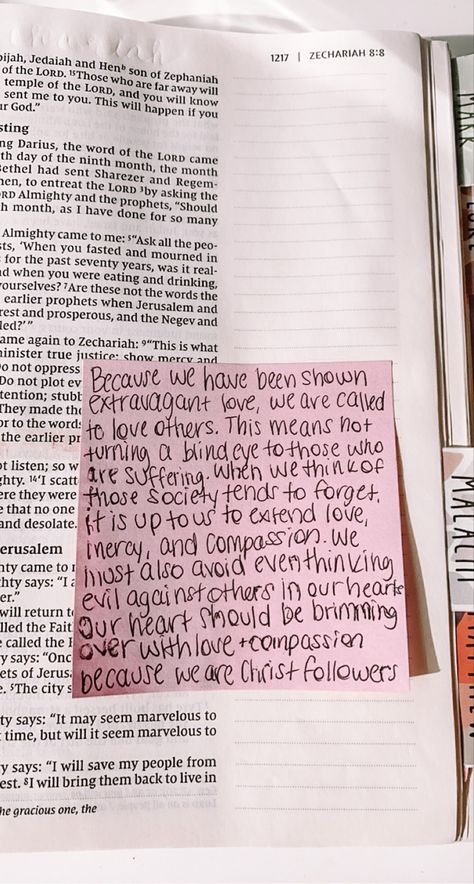 1217 | ZECHARIAH 8:8
bijah, Jedaiah and Henb son of Zephaniah
of the LORD. 15Those who are far away will
temple of the LORD, and you will know
sent me to you. This will happen if you
ur God."
sting
ng Darius, the word of the LORD came
th day of the ninth month, the month
Bethel had sent Sharezer and Regem-
hen, to entreat the LORD 3by asking the
ORD Almighty and the prophets, "Should
h month, as I have done for so many
Almighty came to me: 5"Ask all the peo-
sts, 'When you fasted and mourned in
for the past seventy years, was it real-
nd when you were eating and drinking,
yourselves? 7Are these not the words the
earlier prophets when Jerusalem and
rest and prosperous, and the Negev and
led?'"
ame again to Zechariah: 9"This is what
minister true justice; show mercy and
o not oppress
Do not plot ev
tention; stubb
They made the
or to the words
the earlier pr
ot listen; so w
ghty. 14'I scatt
ere they were
e that no one
and desolate.
erusalem
hty came to
hty says: "I a
er."
will return t
lled the Fait
called the
y says: "Onc
ets of Jerusa
e. 5The city s
ty says: "It may seem marvelous to
time, but will it seem marvelous to
y says: "I will save my people from
est. 8I will bring them back to live in
he gracious one, the
Because we have been shown
extravagant love, we are called
to love others. This means not
turning a blind eye to those who
are suffering. When we think of
those society tends to forget,
it is up to us to extend love,
mercy, and compassion. We
must also avoid even thinking
evil against others in our hearts
our heart should be brimming
over with love + compassion
because we are Christ followers
MARK
LUKE
MALACHI
MATTHEW